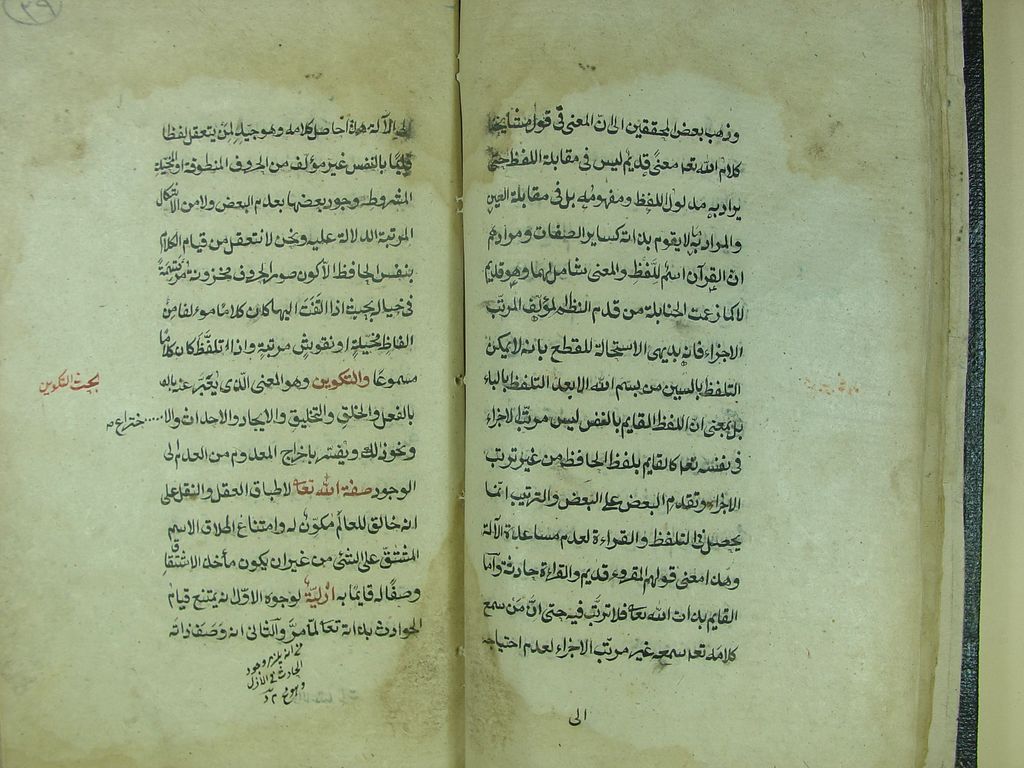 وذهب بعض المحققين الى ان المعنى في قول مشايخنا
كلام الله تعه معنًى قديم ليس في مقابلة اللفظ حتى
يراد به مدلول اللفظ ومفهومه بل في مقابلة العين
والمراد به ما لا يقوم بذاته كساير الصفات ومرادهم
ان القرآن اسم للّفظ والمعنى شامل لهما وهو قديم
لا كما زعمت الحنابلة من قدم النظم المؤلف المرتّب
الاجزاء فانه بديهى الاستحالة للقطع بانه لا يمكن
التلفظ بالسين من بسم الله الا بعد التلفظ بالباء
بل بمعنى انّ اللفظ القايم بالنفس ليس مرتّب الاجزاء
في نفسه تعه كالقايم بلفظ الحافظ من غير ترتب
الاجزاء وتقدم البعض على البعض والترتيب انما
يحصل في التلفظ والقراءة لعدم مساعدة الآلة
وهذا معنى قولهم المقروء قديم والقراءة حادثة واما
القايم بذات الله تعا فلا ترتّب فيه حتى انّ من سمع
كلامه تعه سمعه غير مرتّب الاجزاء لعدم احتياجه
الى
٣٩
الى الآلة هذا حاصل كلامه وهو جيد لمن يتعقل لفظا
قايمًا بالنفس غير مؤلف من الحروف المنطوقة او المخيلة
المشروطه وجود بعضها بعدم البعض ولا من الاشكال
المرتبة الدلالة عليه ونحن لا نتعقل من قيام الكلام
بنفس الحافظ الا كون صور الحروف مخزونة مرتسمةً
في خياله بحيث اذا التَفَت اليها كان كلامًا مؤلفا من
الفاظ مخيلةٍ او نقوش مرتبةٍ واذا تلفّظ كان كلامًا
مسموعًا والتكوين وهو المعنى الّذى يُعَبّر عنه
بحث التكوين
بالفعل والخلق والتخليق والايجاد والاحداث والاختراع
ونحو ذلك ويفسّر باخراج المعدوم من العدم الى
الوجود صفة الله تعا لاطباق العقل والنقل على
انه خالق للعالم مكوّن له وامتناع اطلاق الاسم
المشتقّ على الشئ من غير ان يكون مأخذ الاشتقاق
وصفًا له قايمًا به ازليّة لوجوه الاوّل انه يمتنع قيام
الحوادث بذاته تعا لما مرَّ والثانى انه وَصَف ذاته
وجود
الحادث في الازل